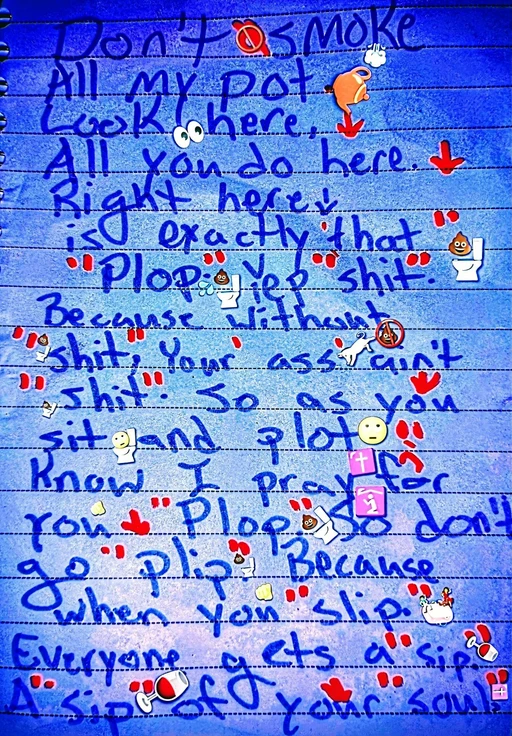 Don't smoke
All my pot
Look here,
All you do here.
Right here
is exactly that "
"Plop." Yep "shit".
Because without
"shit", your' ass 'ain't
"shit". So as you
sit and plot
Know I pray for
you "Plop." So don't
go "plip". Because
when you "slip."
Everyone gets a "sip."
A "sip" of your soul."